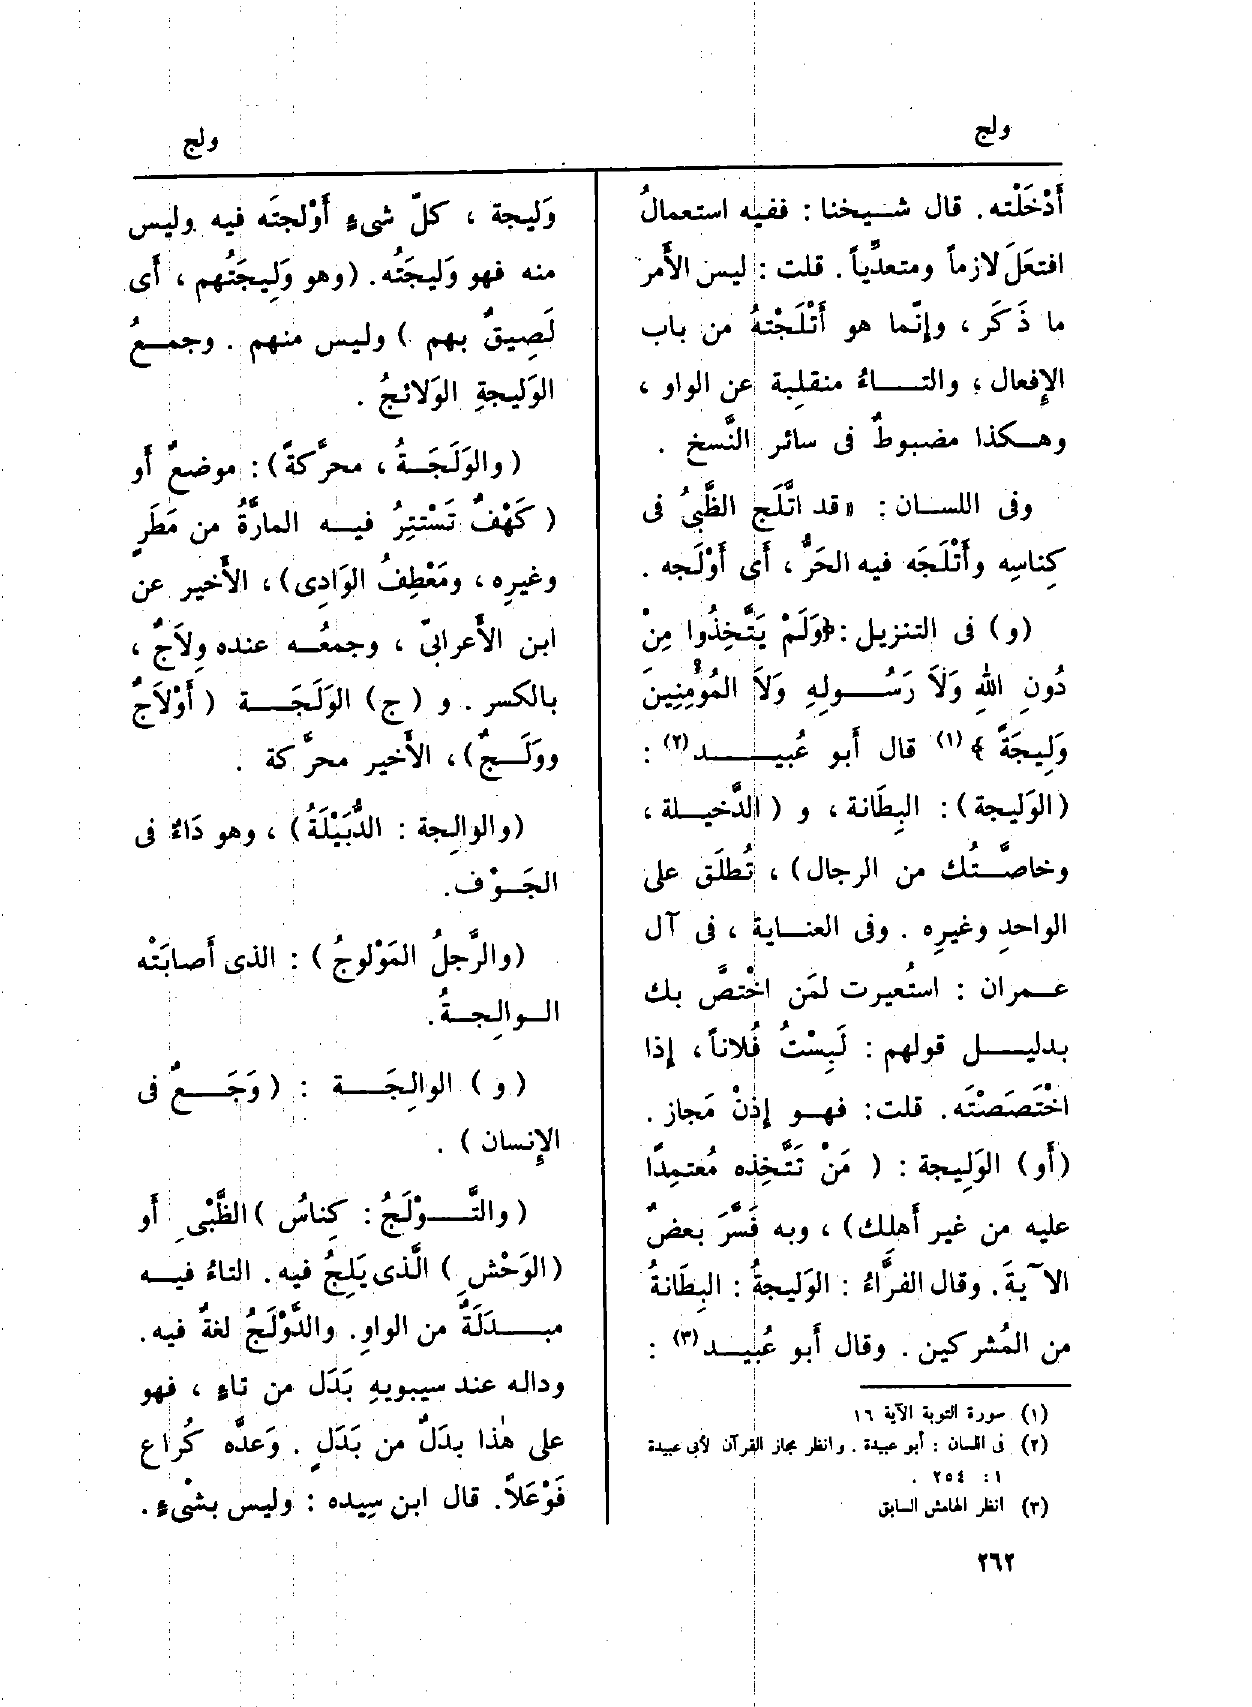 ولج
ولج
أَدْخَلْته. قال شيخنا : ففيه استعمالُ
افتعَلَ لازماً ومتعدِّياً. قلت : ليس الأَمر
ما ذَكَر ، وإنّما هو أَتْلَجْتهُ من باب
الإِفعال ، والتاءُ منقلِبة عن الواو ،
وهكذا مضبوطٌ فى سائر النَّسخ .
وفى اللسان : « قد اتَّلَج الظَّبىُ فى
كِناسِه وأَتْلَجَه فيه الحَرُّ ، أَى أَوْلَجه .
(و) فى التنزيل : ﴿وَلَمْ يَتَّخِذُوا مِنْ
دُونِ اللهِ وَلَا رَسُولِهِ وَلَا المُؤْمِنِينَ
وَلِيجَةً ﴾ (١) قال أَبو عُبيد (٢) :
(الوَلِيجة) : البِطَانة ، و (الدَّخيلة ،
وخاصَّتُك من الرجال) ، تُطلَق على
الواحدِ وغيرِه . وفى العناية ، فى آل
عمران : استُعيرت لمَن اخْتصَّ بك
بدليل قولهم : لَبِسْتُ فُلاناً ، إِذا
اخْتَصَصْتَه. قلت : فهو إِذنْ مَجاز .
(أَو) الوَلِيجة : ( مَنْ تَتَّخِذه مُعتمِدًا
عليه من غير أَهلِك) ، وبه فَسَّرَ بعضٌ
الآيةَ. وقال الفرَّاءُ : الوَليجةُ : البِطَانةُ
من المُشركين . وقال أَبو عُبيد (٣) :
(١) سورة التوبة الآية ١٦
(٢) فى اللسان : أبو عبيدة . وانظر مجاز القرآن لأبى عبيدة
١ : ٢٥٤ .
(٣) انظر الهامش السابق
وَليجة ، كلّ شىءٍ أَوْلجتَه فيه وليس
منه فهو وَليجَتُه. (وهو وَلِيجَتُهم ، أَى
لَصِيقٌ بهم ) وليس منهم . وجمعُ
الوَليجةِ الوَلائجُ .
(والوَلَجَةُ ، محرَّكةً) : موضعٌ أَو
( كَهْفٌ تَسْتتِرُ فيه المارَّةُ من مَطَرٍ
وغيرِه ، ومَعْطِفُ الوَادِى) ، الأَخير عن
ابن الأَعرابىّ ، وجمعُه عنده وِلَاجٌ ،
بالكسر . و (ج) الوَلَجَة ( أَوْلَاجٌ
ووَلَجٌ) ، الأَخير محرَّكة .
(والوالِجة : الدُّبَيْلَةُ) ، وهو دَاءٌ فى
الجَوْف.
(والرَّجلُ المَوْلوجُ ) : الذى أَصابَتْه
الوالِجةُ.
( و ) الوالِجَة : ( وَجَعٌ فى
الإِنسان ) .
( والتَّوْلَجُ : كِناسُ )الظَّبْىِ أَو
(الوَحْشِ ) الَّذى يَلِجُ فيه. التاءُ فيه
مبدَلَةٌ من الواوِ. والدَّوْلَجُ لغةٌ فيه.
وداله عند سيبويهِ بَدَل من تاءٍ ، فهو
على هٰذا بدَلٌ من بَدَلٍ . وَعدَّه كُراع
فَوْعَلاً. قال ابن سِيده : وليس بشْىءٍ .
٢٦٢